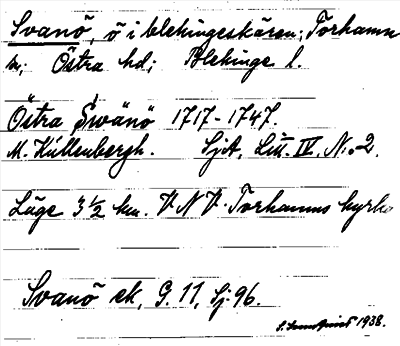 Svanö, ö i blekingeskären; Torhamn
sn; Östra hd; Blekinge l.
Östra Swänö 1717-1747.
M. Kullenbergh. SjA, Litt. IV, No 2.
Läge 3 1/2 km. VNV. Torhamns kyrka
Svanö ek, G. 11, Sj. 96.
1938.